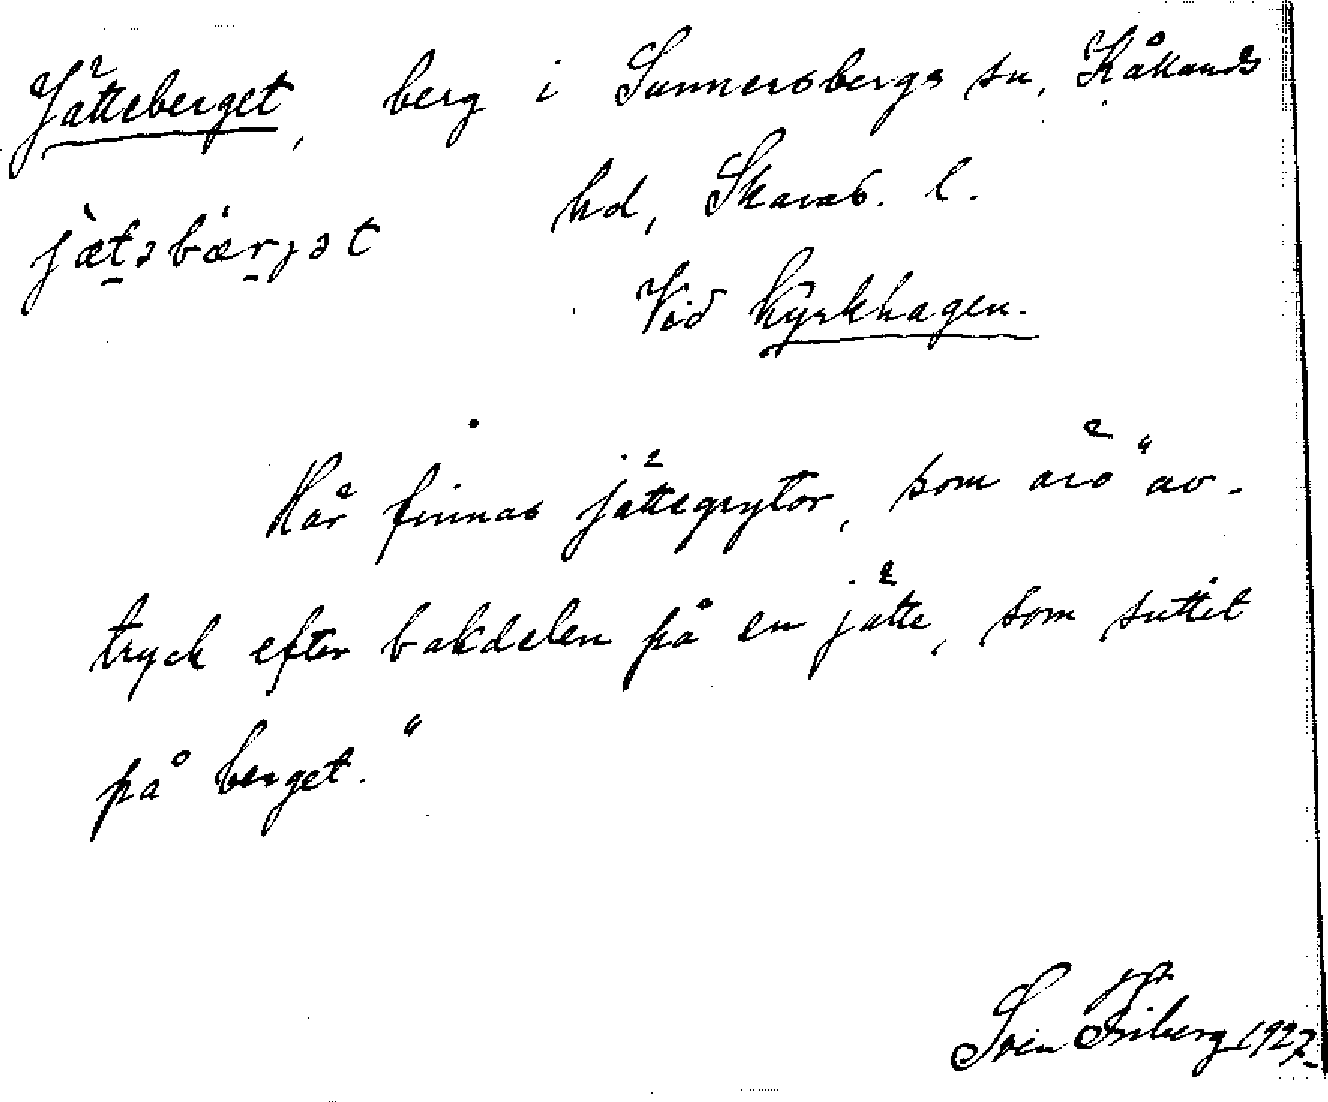 Jätteberget, berg i Sunnersbergs sn, Kållands
jæ̀təbæ̀rjət hd, Skarab. l.
Vid Kyrkhagen.
Här finnas jättegrytor, som äro "av-
tryck efter bakdelen på en jätte, som suttit
på berget."
Sven Friberg 1927